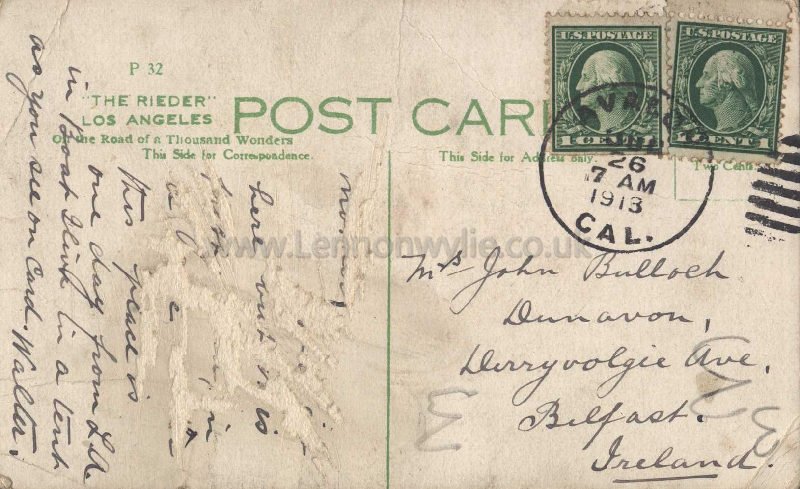 P 32
"THE RIEDER"
LOS ANGELES
On the Road of a Thousand Wonders
This Side for Correspondence.
POST CARD
This Side for Address only.
U.S. POSTAGE
1 CENT 1
U.S. POSTAGE
CENT 1
Two Cents
26
7 AM
1913
CAL.
www.Lennonwylie.co.uk
Mrs John Bulloch
Dunavon,
Derryvolgie Ave,
Belfast.
Ireland.
here
is
in
this place is
one day from L.A.
in Boat I live in a tent
as you see on Card. Walter.